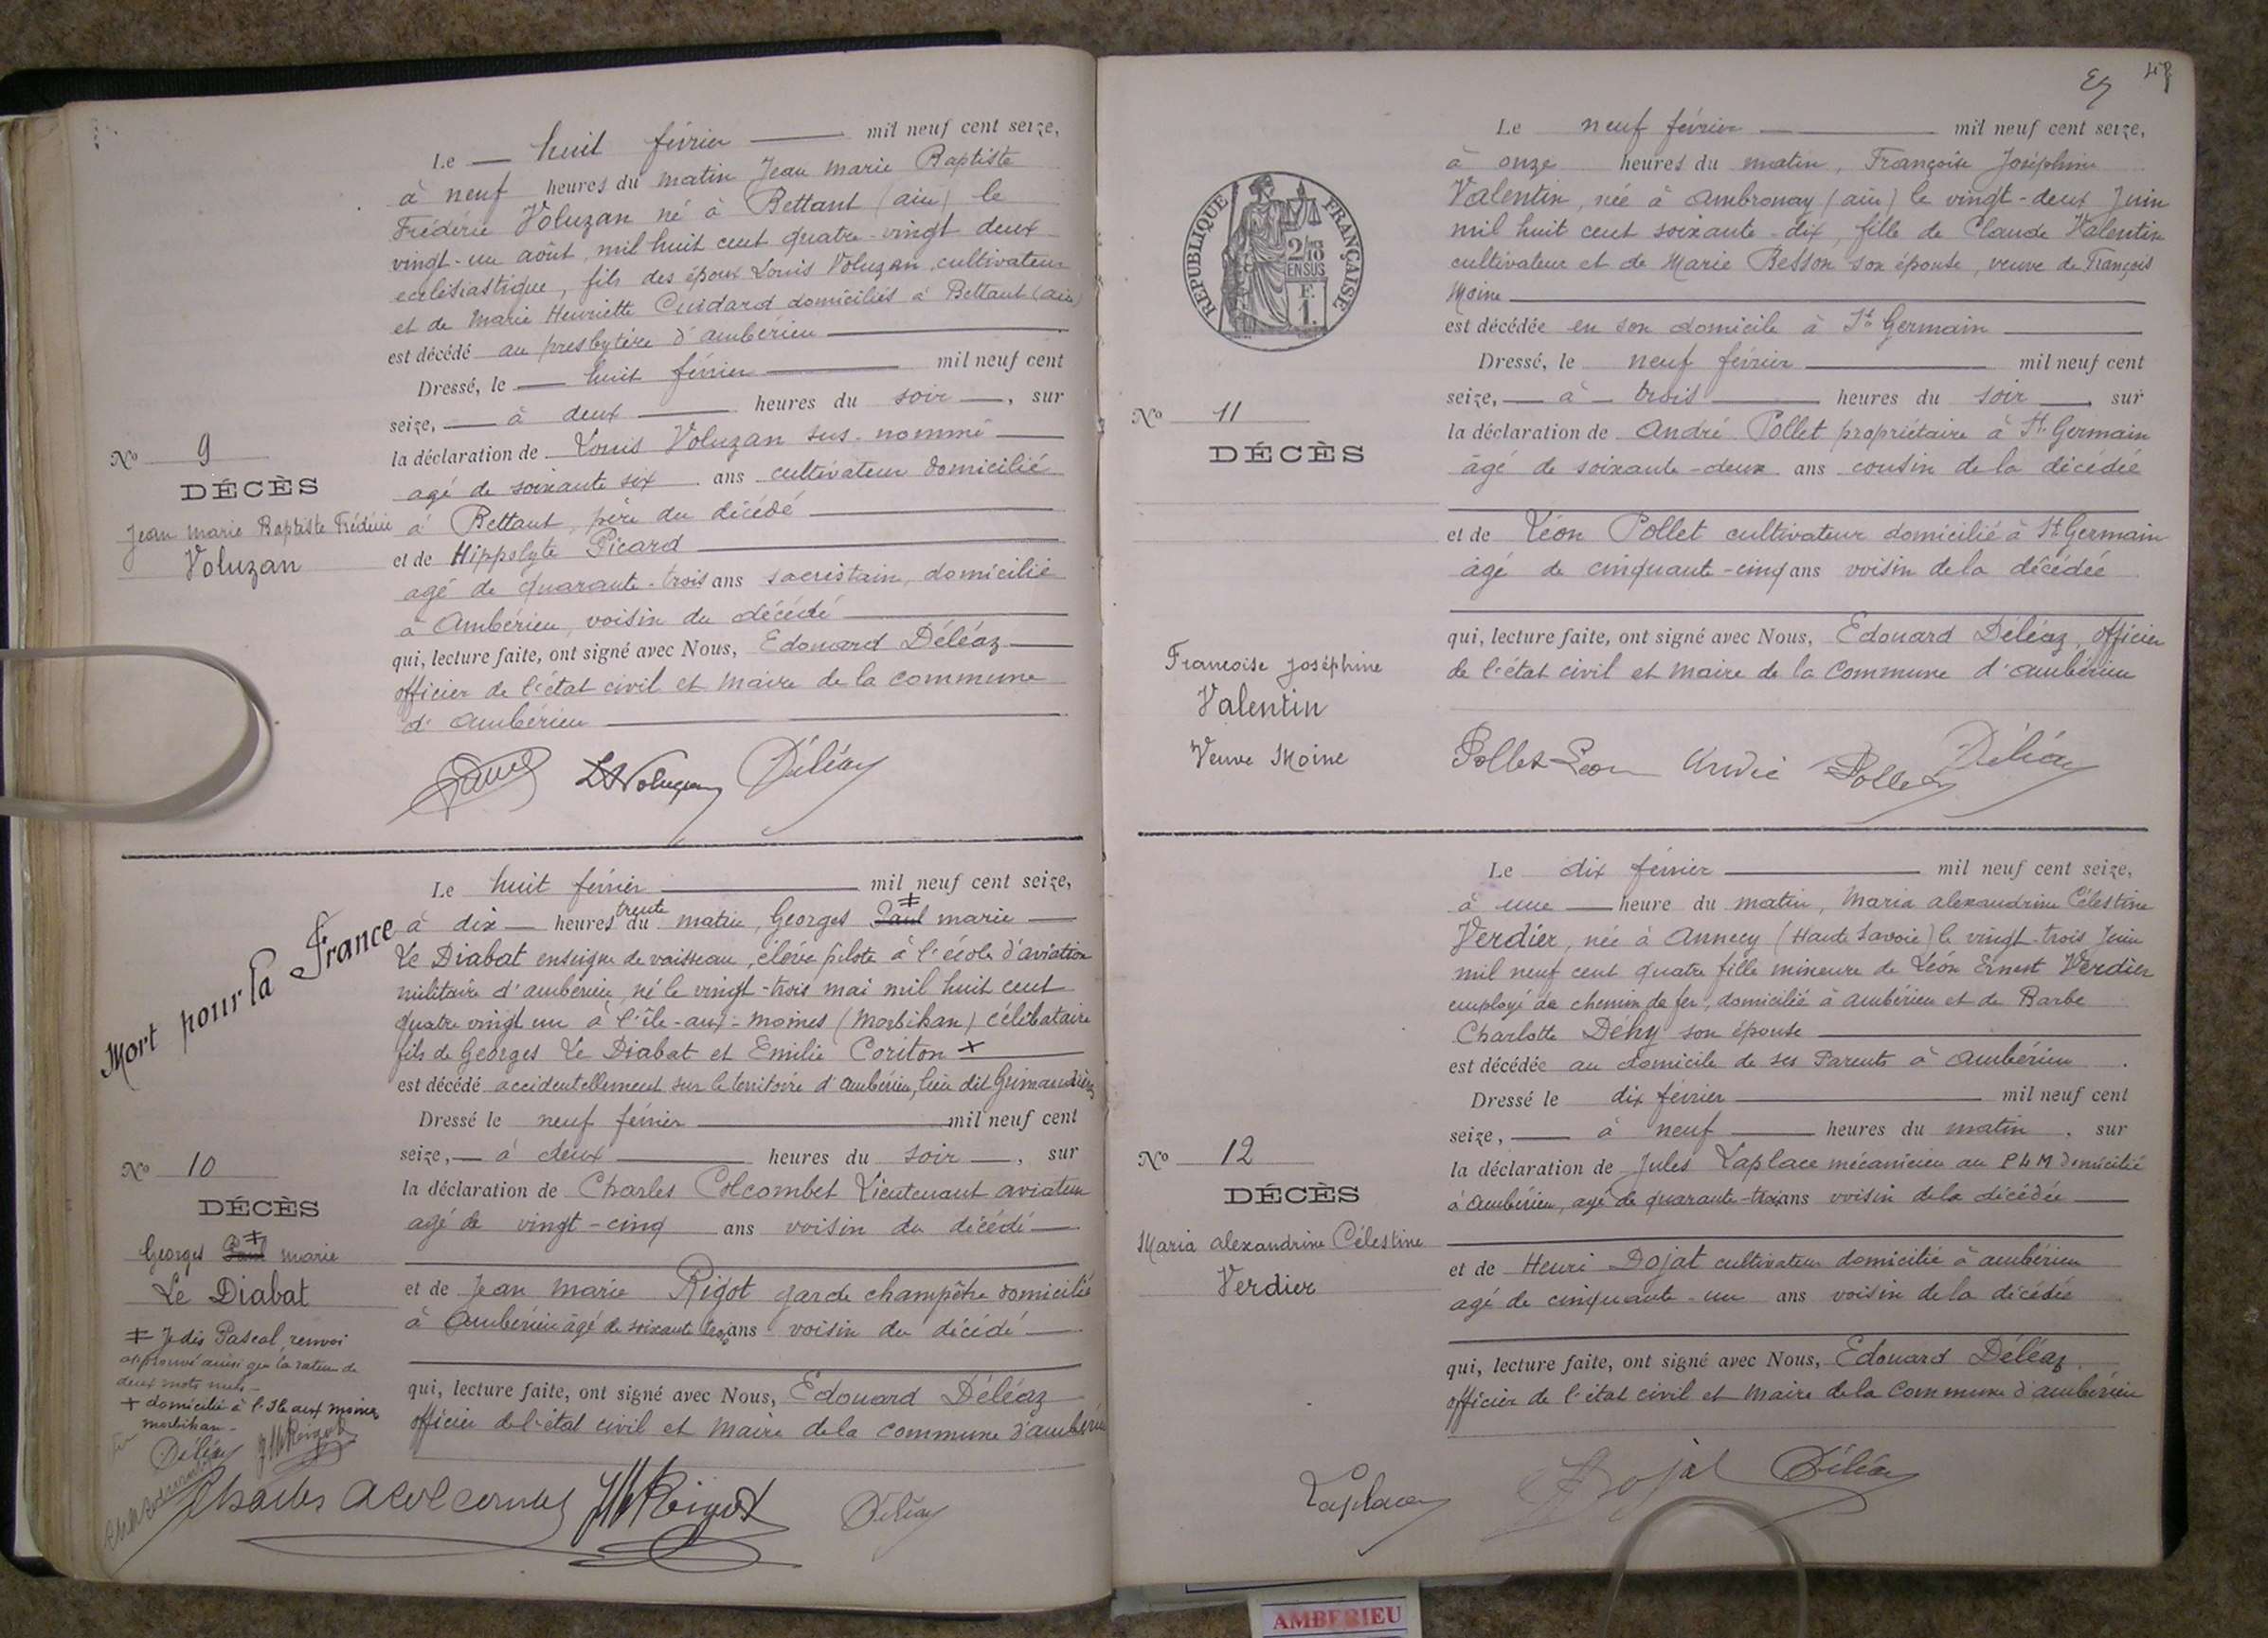 Le — huit février — mil neuf cent seize,
à neuf heures du matin Jean Marie Baptiste
Frédéric Voluzan né à Bettant (ain) le
vingt-un août, mil huit cent quatre-vingt deux
ecclésiastique, fils des époux Louis Voluzan, cultivateur
et de Marie Henriette Cuidard domiciliés à Bettant (ain)
est décédé au presbytère d'ambérieu
Dressé, le — huit février — mil neuf cent
seize, — à deux — heures du soir —, sur
la déclaration de Louis Voluzan sus-nommé
agé de soixante six ans cultivateur domicilié
à Bettant, père du décédé
et de Hippolyte Picard
agé de quarante-trois ans sacristain, domicilié
à Ambérieu, voisin du décédé
qui, lecture faite, ont signé avec Nous, Edouard Déléaz
officier de l'état civil et maire de la commune
d'ambérieu
N° 9
DÉCÈS
Jean Marie Baptiste Frédéric
Voluzan
Voluzan Déléaz
Le huit février — mil neuf cent seize,
à dix — heures trente du matin, Georges Paul ‡ marie
Le Diabat enseigne de vaisseau, élève pilote à l'école d'aviation
militaire d'ambérieu, né le vingt-trois mai mil huit cent
quatre vingt un à l'île-aux-moines (Morbihan) célibataire
fils de Georges Le Diabat et Emilie Coriton +
est décédé accidentellement sur le territoire d'ambérieu, lieu dit
Dressé le neuf février — mil neuf cent
seize, — à deux — heures du soir —, sur
la déclaration de Charles Colcombet Lieutenant aviateur
agé de vingt-cinq ans voisin du décédé
et de Jean Marie Rigot garde champêtre domicilié
à Ambérieu âgé de soixante trois ans voisin du décédé
qui, lecture faite, ont signé avec Nous, Edouard Déléaz
officier de l'état civil et maire de la commune d'ambérieu
Mort pour la France
N° 10
DÉCÈS
Georges Paul ‡ marie
Le Diabat
‡ Je dis Pascal, renvoi
approuvé ainsi que la rature de
deux mots nuls -
+ domicilié à l'Ile aux moines
morbihan -
Déléaz JMRigot
Charles Colcombet JMRigot Déléaz
48
Le neuf février — mil neuf cent seize,
à onze heures du matin, Françoise Joséphine
Valentin, née à Ambronay (ain) le vingt-deux Juin
mil huit cent soixante-dix, fille de Claude Valentin
cultivateur et de Marie Besson son épouse, veuve de François
Moine
est décédée en son domicile à St Germain
Dressé, le neuf février — mil neuf cent
seize, — à — trois — heures du soir —, sur
la déclaration de André Pollet propriétaire à St Germain
âgé de soixante-deux ans cousin de la décédée
et de Léon Pollet cultivateur domicilié à St Germain
âgé de cinquante-cinq ans voisin de la décédée
qui, lecture faite, ont signé avec Nous, Edouard Déléaz, officier
de l'état civil et maire de la commune d'ambérieu
RÉPUBLIQUE FRANÇAISE
2/10
EN SUS
F.
1.
N° 11
DÉCÈS
Francoise Joséphine
Valentin
Veuve Moine
Pollet Léon André Pollet Déléaz
Le dix février — mil neuf cent seize,
à une — heure du matin, Maria alexandrine Célestine
Verdier, née à Annecy (Haute Savoie) le vingt-trois Juin
mil neuf cent quatre fille mineure de Léon Ernest Verdier
employé de chemin de fer, domicilié à ambérieu et de Barbe
Charlotte Déhy son épouse
est décédée au domicile de ses Parents à Ambérieu
Dressé le dix février — mil neuf cent
seize, — à neuf — heures du matin, sur
la déclaration de Jules Laplace mécanicien au PLM domicilié
à Ambérieu, agé de quarante-trois ans voisin de la décédée
et de Henri Dojat cultivateur domicilié à ambérieu
agé de cinquante-un ans voisin de la décédée
qui, lecture faite, ont signé avec Nous, Edouard Déléaz,
officier de l'état civil et maire de la commune d'ambérieu
N° 12
DÉCÈS
Maria alexandrine Célestine
Verdier
Laplace Dojat Déléaz
AMBERIEU